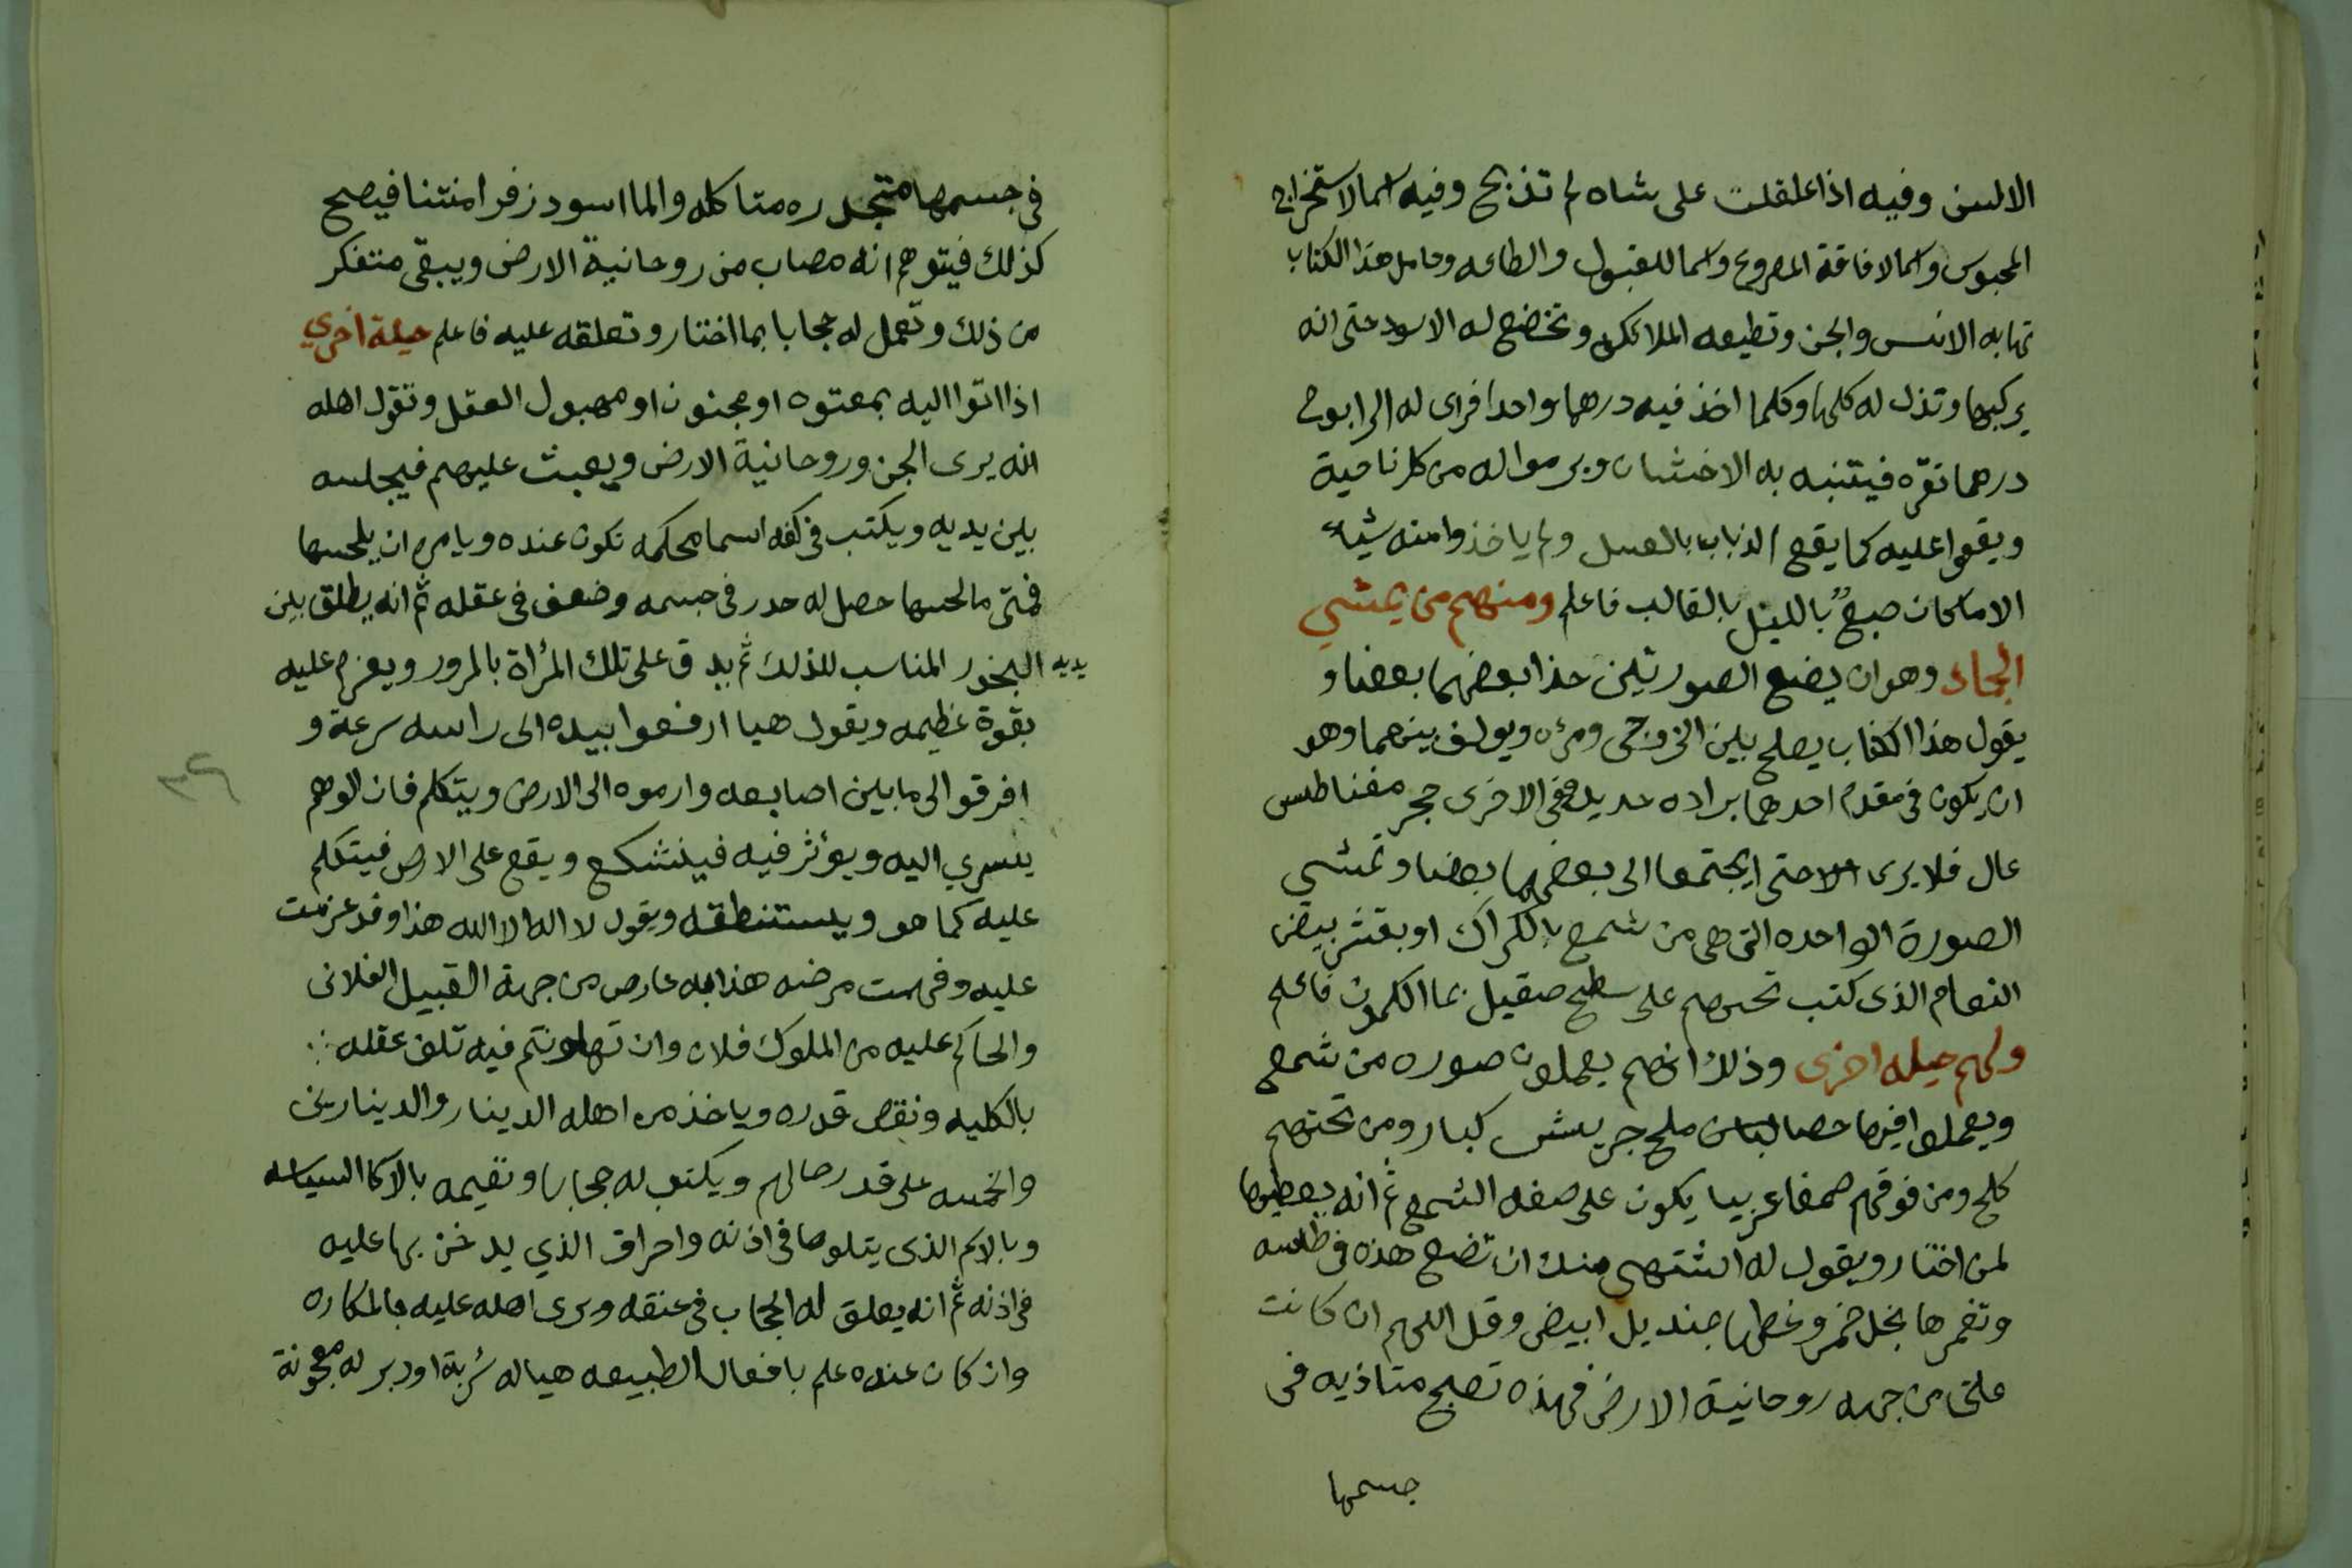 الالسن وفيه اذا علقلت على شاه لم تذبح وفيه اسما لاستخراج
المحبوس واسما لافاقة المصروع واسما للقبول والطاعه وحامل هذا الكتاب
تهابه الانس والجن وتطيعه الملائكه وتخضع له الاسود حتى انه
يركبها وتذل له كلها وكلما اخذ فيه درهما واحدا فراى له الرابوح
درهما نقره فيتنبه به الاخشان ويرموا له من كل ناحية
ويقعوا عليه كما يقع الذباب بالعسل ولم ياخذوا منه شيأ
الا ماكان صبغ بالليل بالقالب فاعلم ومنهم من يمشي
الجماد وهو ان يضع الصورتين حذا بعضهما بعضا و
يقول هذا الكتاب يصلح بين الزوجى ومرئه ويولف بينهما وهو
ان يكون في مقدم احدهما براده حديد وفي الاخرى حجر مغناطس
عال فلا يرى الا حتى ايجتمعا الى بعضهما بعضا وتمشي
الصورة الواحده التى هى من شمع بالكراك او بقشر بيض
النعام الذى كتب تحتهم على سطح صقيل بما الكمون فاعلم
ولهم حيله اخرى وذلك انهم يعملون صوره من شمع
ويعملوا فيها حصا لبان ملح جريش كبار ومن تحتهم
كلح ومن فوقهم صمغا عربيا يكون على صفه الشمع ثم انه يعطيها
لمن اختار ويقول له اشتهى منك ان تضع هذه فى طاسه
وتغمرها بخل خمر وغطها بمنديل ابيض وقل اللهم ان كانت
علتى من جهه روحانية الارض فهذه تصبح متاذيه فى
جسمها
فى جسمها متجدره متاكله والما اسود زفرا منتنا فيصبح
كذلك فيتوهم انه مصاب من روحانية الارض ويبقى متفكر
من ذلك وتعمل له حجابا بما اختار وتعلقه عليه فاعلم حيلة اخري
اذا اتوا اليه بمعتوه او مجنون او مهبول العقل وتقول اهله
انه يرى الجن وروحانية الارض ويعبث عليهم فيجلسه
بين يديه ويكتب فى كفه اسما محكمه تكون عنده ويامره ان يلحسها
فمتى ما لحسها حصل له حدر فى جسمه وضعف فى عقله ثم انه يطلق بين
يديه البخور المناسب للذلك ثم يدق على تلك المرأة بالمرور ويعزم عليه
بقوة عظيمه ويقول هيا ارفعوا بيده الى راسه سرعة و
افرقوا الى ما بين اصابعه وارموه الى الارض ويتكلم فان الوهم
يسري اليه ويؤثر فيه فينشكع ويقع على الارض فيتكلم
عليه كما هو ويستنطقه ويقول لا اله الا الله هذا وقد عزمت
عليه وفهمت مرضه هذا به عارص من جهة القبيل الفلانى
والحاكم عليه من الملوك فلان وان تهاونتم فيه تلف عقله
بالكليه ونقص قدره وياخذ من اهله الدينار والدينارين
والخمسه على قدر حالهم ويكتب له حجابا وتقيمه بالاكا السياسه
وبالاسم الذى يتلوها فى اذنه واحراق الذي يدخن بها عليه
فى اذنه ثم انه يعلق له الحجاب فى عنقه ويرى اهله عليه بالمكاره
وان كان عنده علم بافعال الطبيعه هياله شربة او دبر له معجونة
٣٦